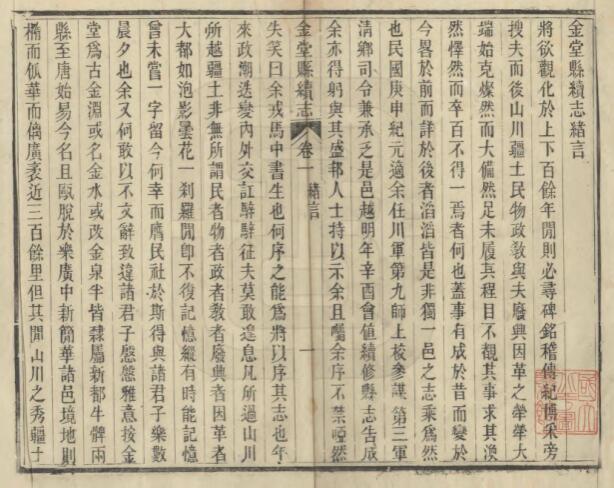 金堂縣續志緒言
將欲觀化於上下百餘年間則必尋碑銘稽傳紀博采旁
搜夫而後山川疆土民物政敎與夫廢興因革之犖犖大
端始克燦然而大備然足未履其程目不覩其事求其渙
然懌然而卒百不得一焉者何也蓋事有成於昔而變於
今畧於前而詳於後者滔滔皆是非獨一邑之志乘爲然
也民國庚申紀元適余任川軍第九師上校參謀第三軍
淸鄉司令兼承乏是邑越明年辛酉會値續修縣志告成
余亦得躬與其盛邦人士持以示余且囑余序不禁啞然
金堂縣續志 卷一 緒言 一
失笑曰余戎馬中書生也何序之能爲將以序其志也年
來政潮迭變內外交訌騂騂征夫莫敢遑息凡所過山川
所越疆土非無所謂民者物者政者敎者廢興者因革者
大都如泡影曇花一刹羅間卽不復記憶縱有時能記憶
曾未嘗一字留今何幸而膺民社於斯得與諸君子樂數
晨夕也余又何敢以不文辭致違諸君子慇慇雅意按金
堂爲古金淵或名金水或改金泉半皆隸屬新都牛鞞兩
縣至唐始易今名且甌脫於樂廣中新簡華諸邑境地則
橢而佤華而傋廣袤近三百餘里但其間山川之秀疆土